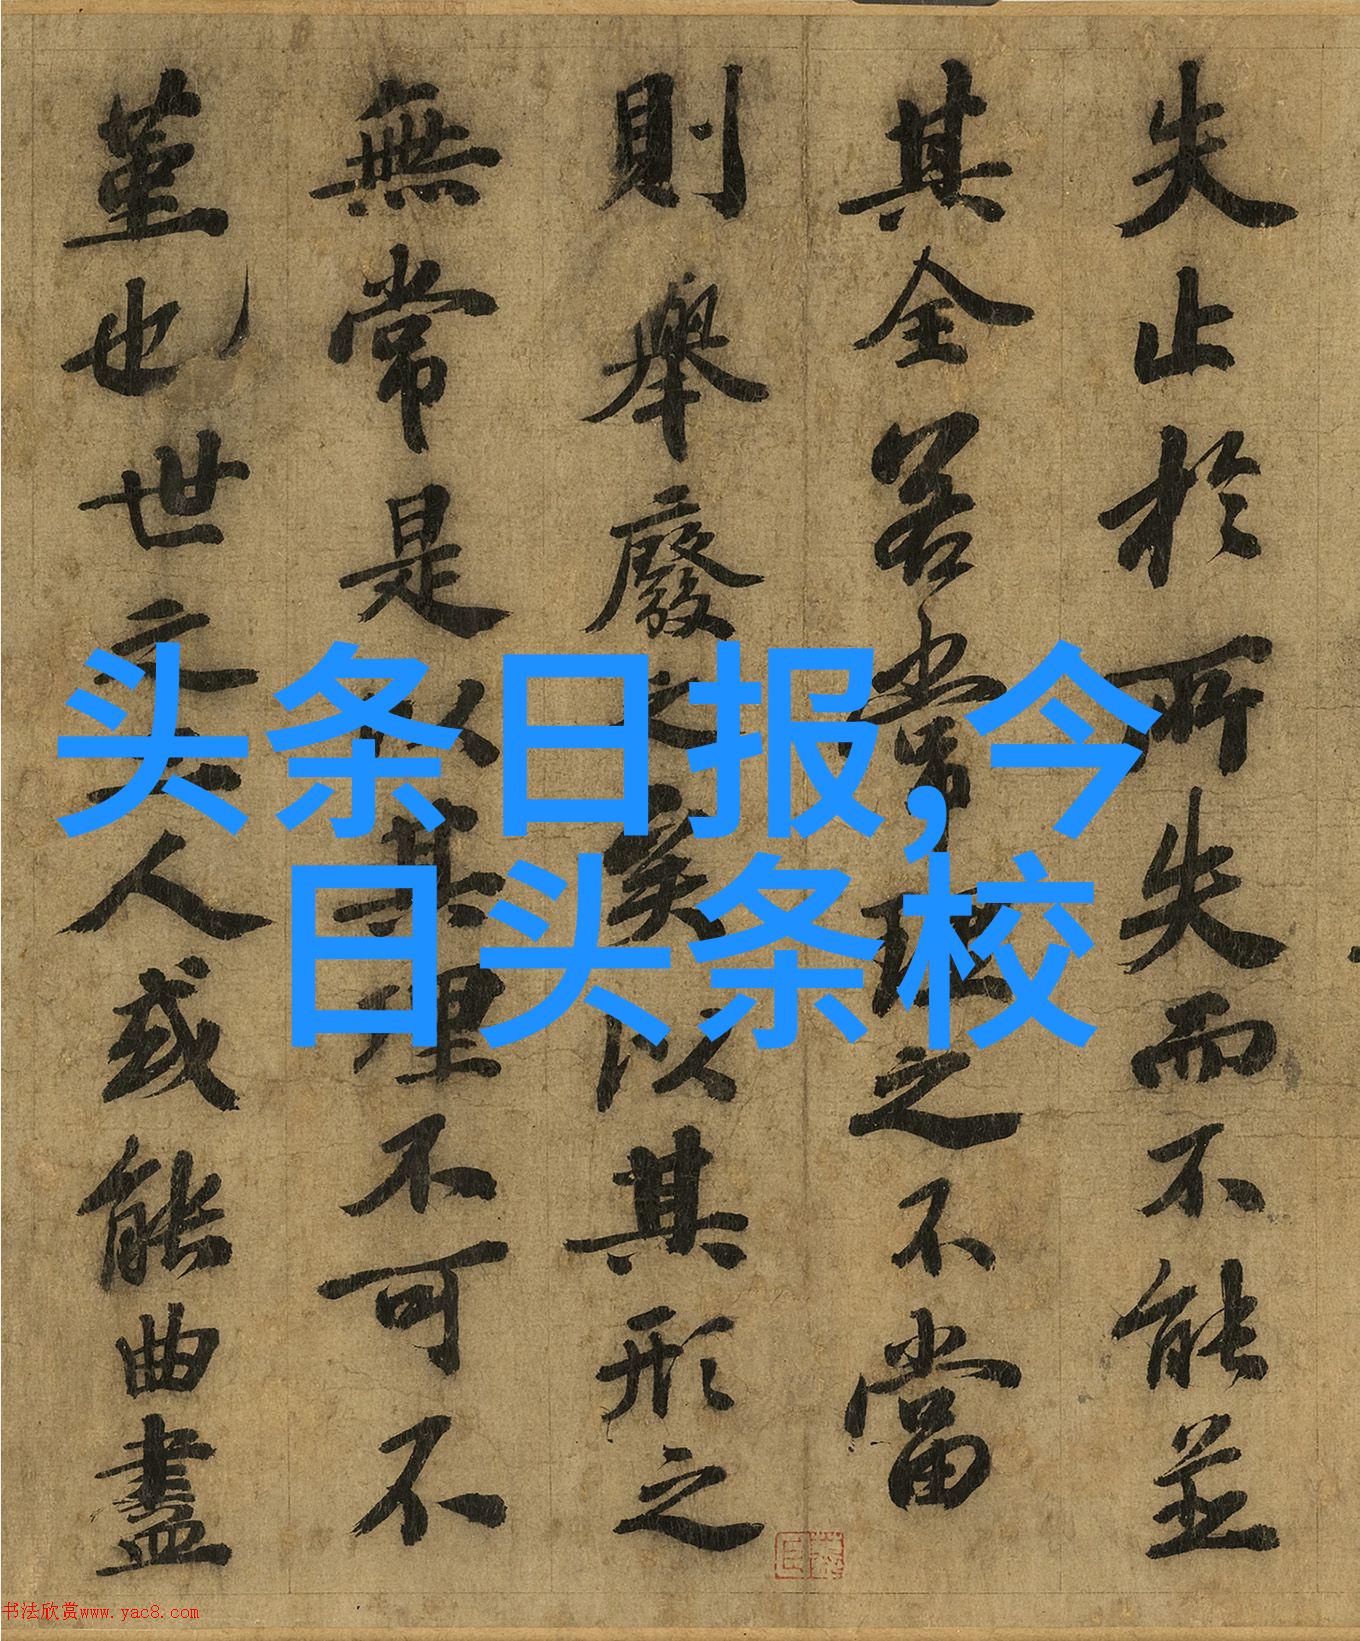 失止於所失而不能並
其全若常理之不當
則舉廢之矣以其形之
無常是以其理不可不
堇也世之工人或能曲盡
头条日报,今
日头条校
书法欣赏www.yac8.com